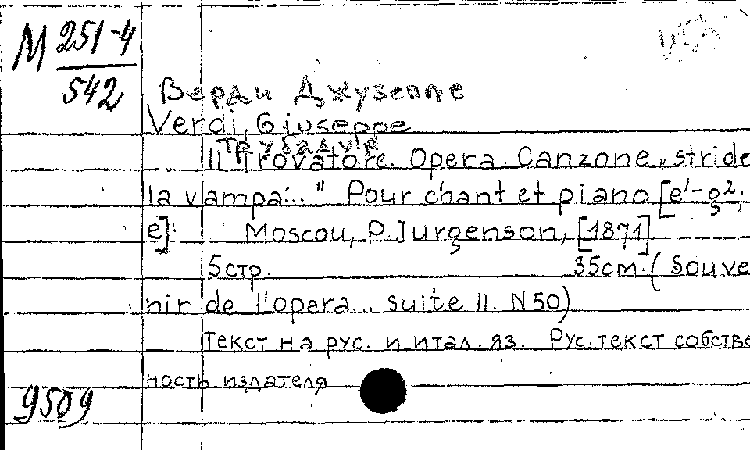 М 251-4
542
Верди Джузеппе
Verdi, Giuseppe
Трубадур
Il Trovatore. Opera. Canzone „stride
la vampa..." Pour chant et piano [e'-g².
e]. Moscou, P. Jurgenson, [1871]
5стр. 35cm. (Souve
nir de l'opera... suite II. N50)
Текст на рус. и итал. яз. Рус. текст собстве
ность издателя
9509